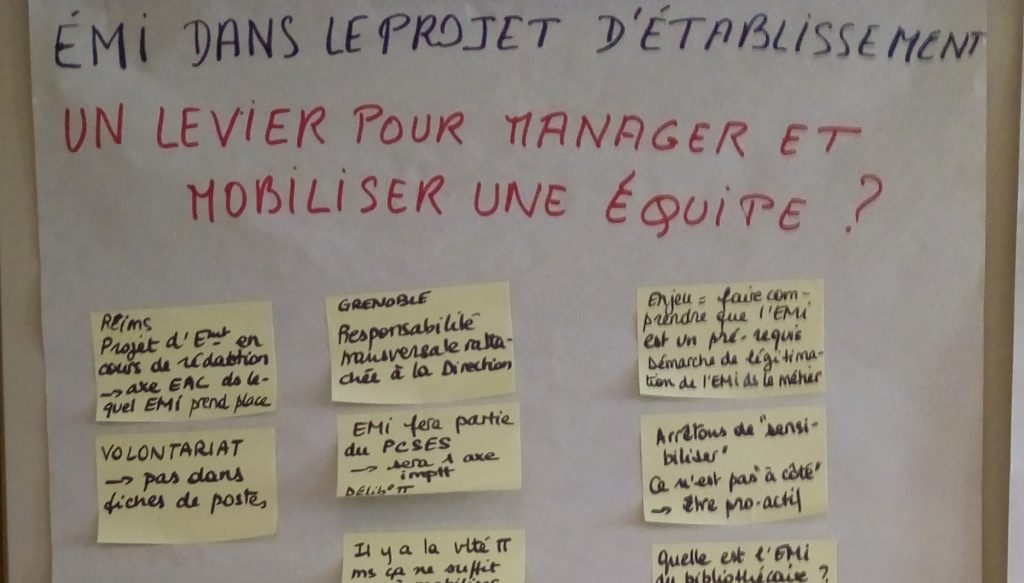 ÉMI DANS LE PROJET D'ÉTABLISSEMENT
UN LEVIER POUR MANAGER ET
MOBILISER UNE ÉQUIPE ?
REims
Projet d'Emt en
cours de rédaction
→ axe EAC ds le-
quel EMI prend place
VOLONTARIAT
→ pas dans
fiches de postes
GRENOBLE
Responsabilité
transversale ratta-
chée à la Direction
EMI fera partie
du PCSES
→ sera 1 axe
imptt
Il y a la vlté π
ms ça ne suffit
Enjeu = faire com-
prendre que l'EMI
est un pré-requis
Démarche de légitima-
tion de l'EMI ds le métier
Arrêtons de "sensi-
biliser"
Ce n'est pas "à côté"
→ être pro-actif
Quelle est l'EMI
du bibliothécaire ?